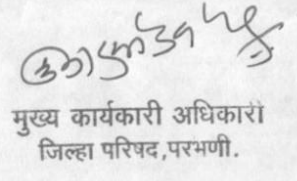 मुख्य कार्यकारी अधिकारी
जिल्हा परिषद,परभणी.